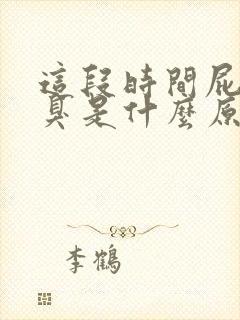 這段時間屁
臭是什麼原
李鶴